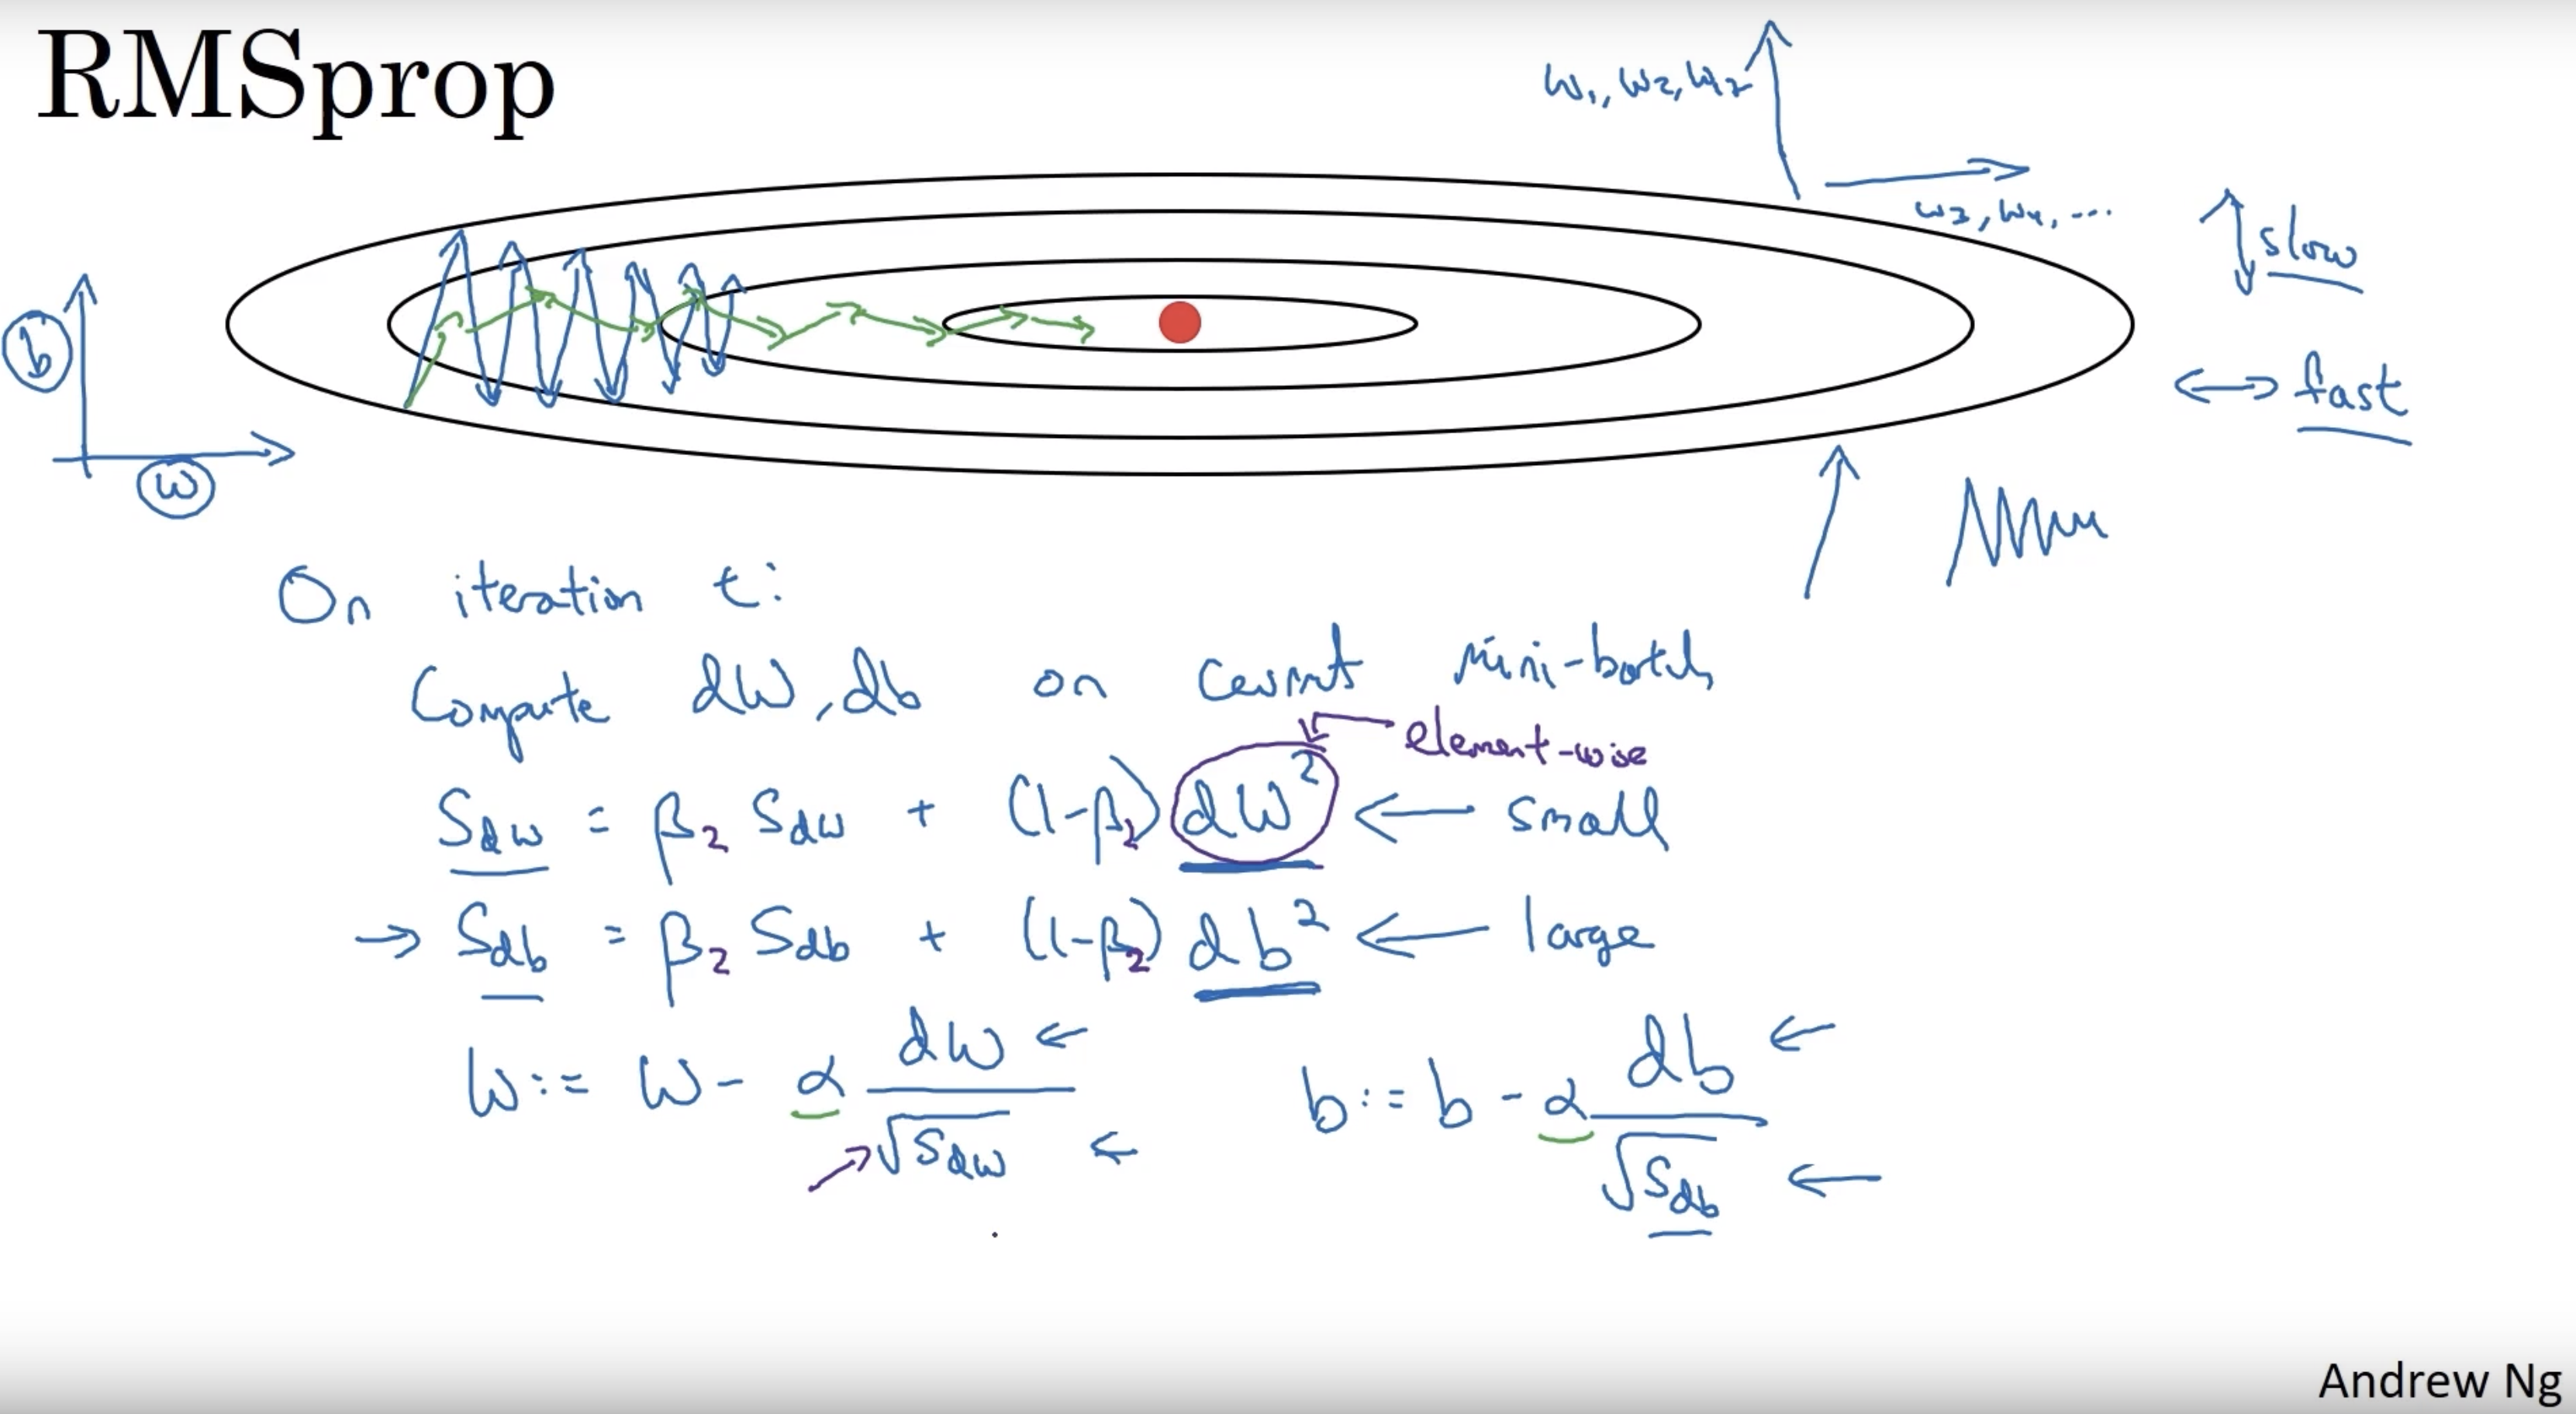 RMSprop
w₁, w₂, w₁₇
w₃, w₄, ...
slow
fast
b
w
On iteration t:
Compute dW, db on current mini-batch
element-wise
S_dw = β₂ S_dw + (1-β₂) dW² ← small
→ S_db = β₂ S_db + (1-β₂) db² ← large
W := W - α dW / √S_dw ← b := b - α db / √S_db ←
Andrew Ng